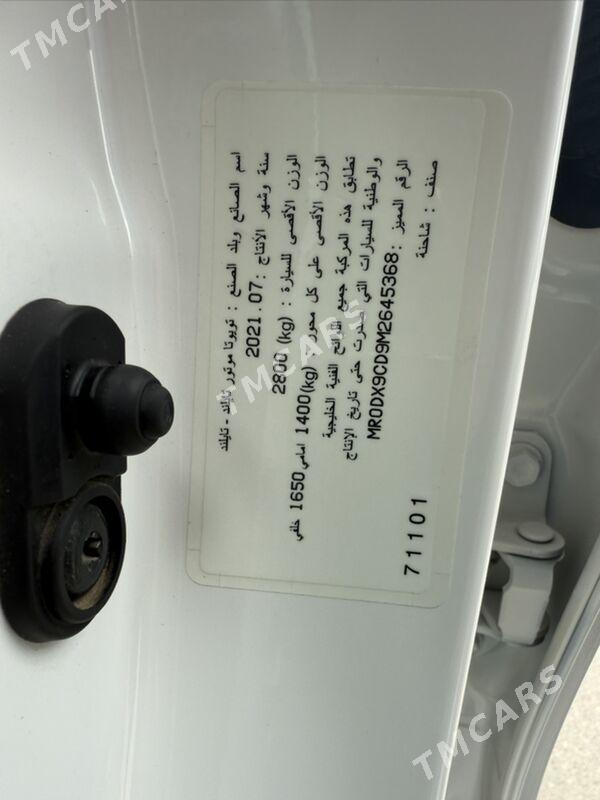 اسم الصانع وبلد الصنع : تويوتا موتور تايلند - تايلند
سنة وشهر الأنتاج : 2021.07
الوزن الأقصى للسيارة : (kg) 2800
الوزن الأقصى على كل محور : (kg)1400 امامي 1650 خلفي
تطابق هذه المركبة جميع اللوائح الفنية الخليجية
والوطنية للسيارات التي صدرت حتى تاريخ الإنتاج
الرقم المميز :MR0DX9CD9M2645368
صنف : شاحنة
71101
TMCARS
TMCARS
TMCARS